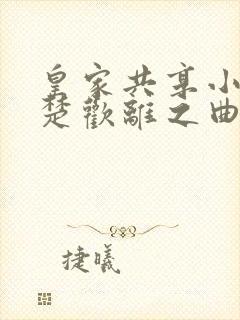 皇家共享小
楚歡離之曲
捷曦